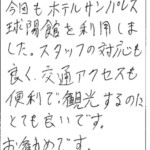 今回もホテルサンパレス
球陽館を利用しま
した。スタッフの対応も
良く、交通アクセスも
便利で観光するのに
とても良いです。
お勧めです。